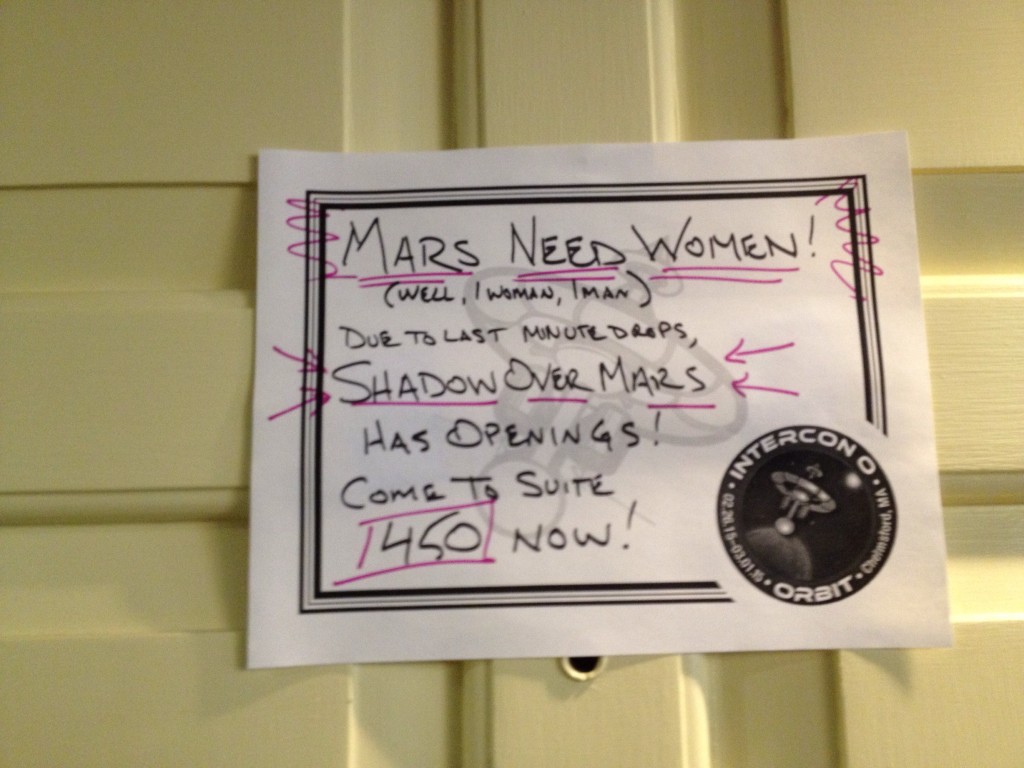 MARS NEED WOMEN!
(WELL, 1 WOMAN, 1 MAN)
DUE TO LAST MINUTE DROPS,
SHADOW OVER MARS
HAS OPENINGS!
COME TO SUITE
1450 NOW!
INTERCON O
02.26.15-03.01.15
Chelmsford, MA
ORBIT